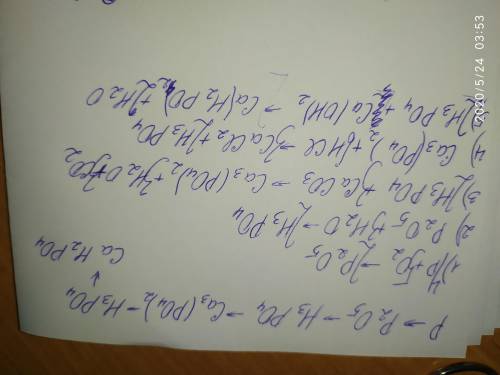 P → P₂O₅ → H₃PO₄ → Ca₃(PO₄)₂ → H₃PO₄
↓
CaH₂PO₄
1) 4P+5O₂ → 2P₂O₅
2) P₂O₅+3H₂O → 2H₃PO₄
3) 2H₃PO₄+3CaCO₃ → Ca₃(PO₄)₂+3H₂O+3CO₂
4) Ca₃(PO₄)₂+6HCl → 3CaCl₂+2H₃PO₄
5) 2H₃PO₄+Ca(OH)₂ → Ca(H₂PO₄)₂+2H₂O
2020/5/24 03:53